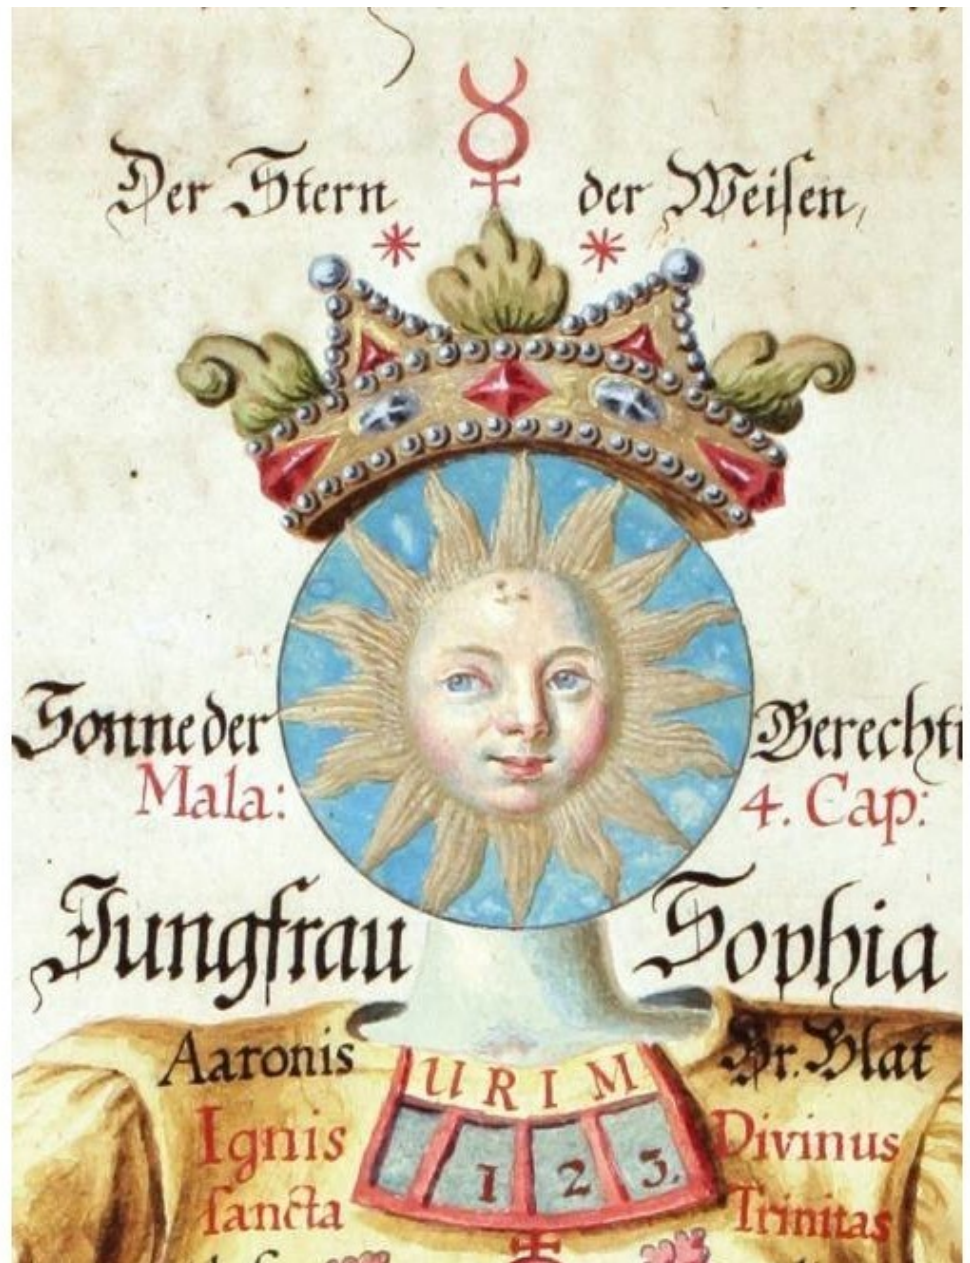 Der Stern der Weisen,
Sonne der Gerechti
Mala: 4. Cap:
Jungfrau Sophia
Aaronis Br. Blat
URIM
Ignis Divinus
1 2 3.
sancta Trinitas